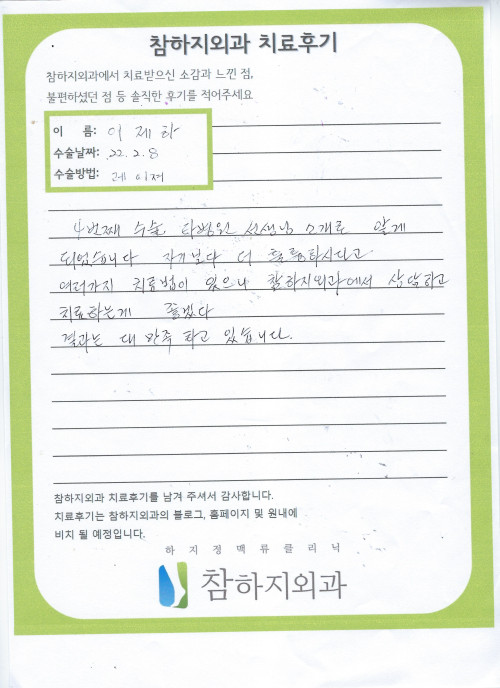 참하지외과 치료후기
참하지외과에서 치료받으신 소감과 느낀 점,
불편하셨던 점 등 솔직한 후기를 적어주세요
이 름: 이 제 하
수술날짜: 22. 2. 8
수술방법: 레이저
4번째 수술 타병원 선생님 소개로 알게
되었습니다 자기보다 더 훌륭하시다고
여러가지 치료법이 있으니 참하지외과에서 상담하고
치료하는게 좋겠다
결과는 대 만족 하고 있습니다.
참하지외과 치료후기를 남겨 주셔서 감사합니다.
치료후기는 참하지외과의 블로그, 홈페이지 및 원내에
비치 될 예정입니다.
하지정맥류클리닉
참하지외과